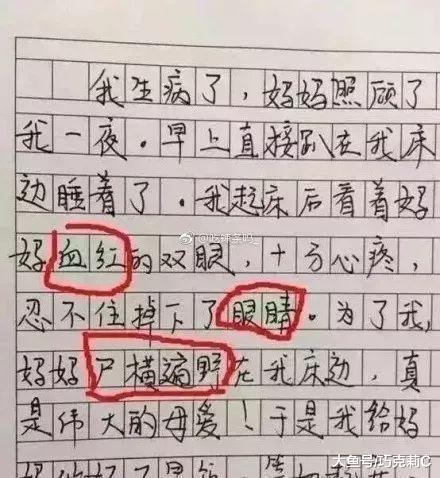 我生病了，妈妈照顾了
我一夜。早上直接趴在我床
边睡着了。我起床后看着妈
妈血红的双眼，十分心疼，
忍不住掉下了眼睛。为了我，
妈妈尸横遍野在我床边，真
是伟大的母爱！于是我给妈
大鱼号/巧克莉C